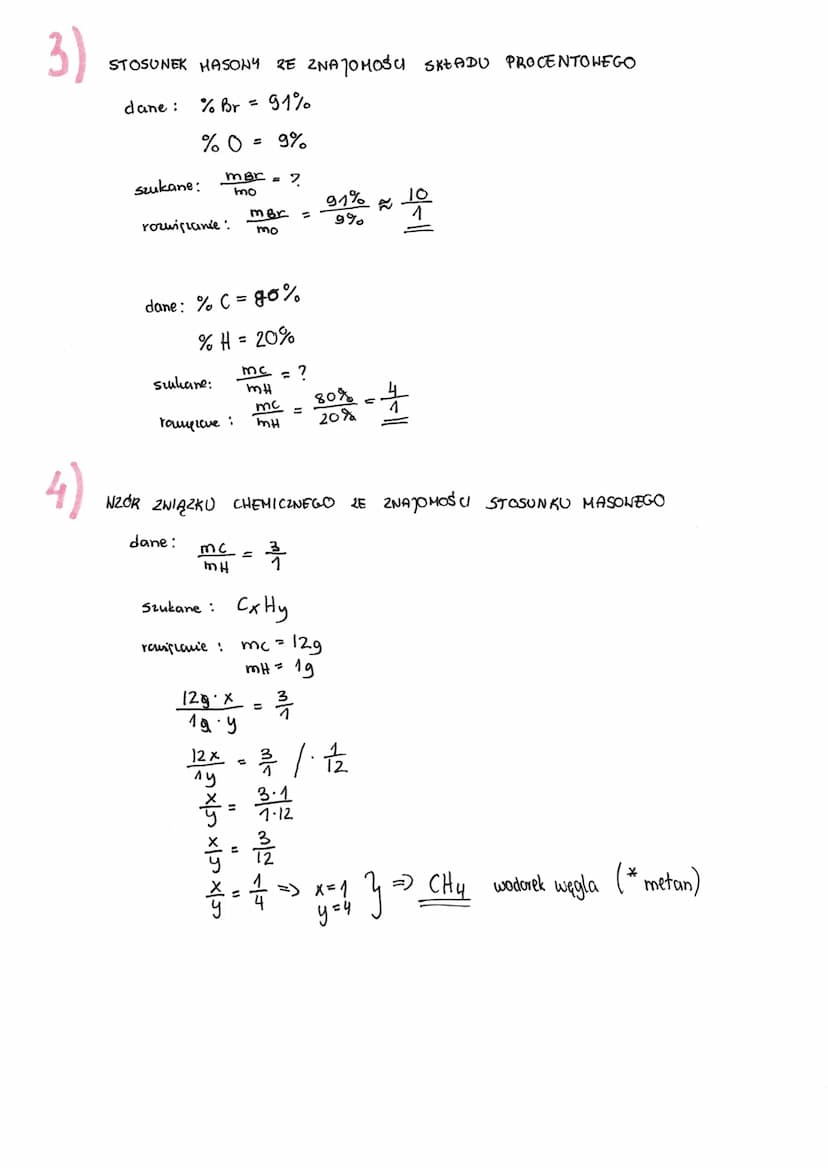 3) STOSUNEK MASOWY ZE ZNAJOMOŚCI SKŁADU PROCENTOWEGO
dane: % Br = 91%
% O = 9%
szukane: mBr/mO = ?
rozwiązanie: mBr/mO = 91%/9% ≈ 10/1
dane: % C = 80%
% H = 20%
szukane: mC/mH = ?
rozwiązanie: mC/mH = 80%/20% = 4/1
4) WZÓR ZWIĄZKU CHEMICZNEGO ZE ZNAJOMOŚCI STOSUNKU MASOWEGO
dane: mC/mH = 3/1
szukane: CxHy
rozwiązanie: mC = 12g
mH = 1g
12g·x/1g·y = 3/1
12x/1y = 3/1 /·1/12
x/y = 3·1/1·12
x/y = 3/12
x/y = 1/4 => x=1 y=4 } => CH4 wodorek węgla (* metan)